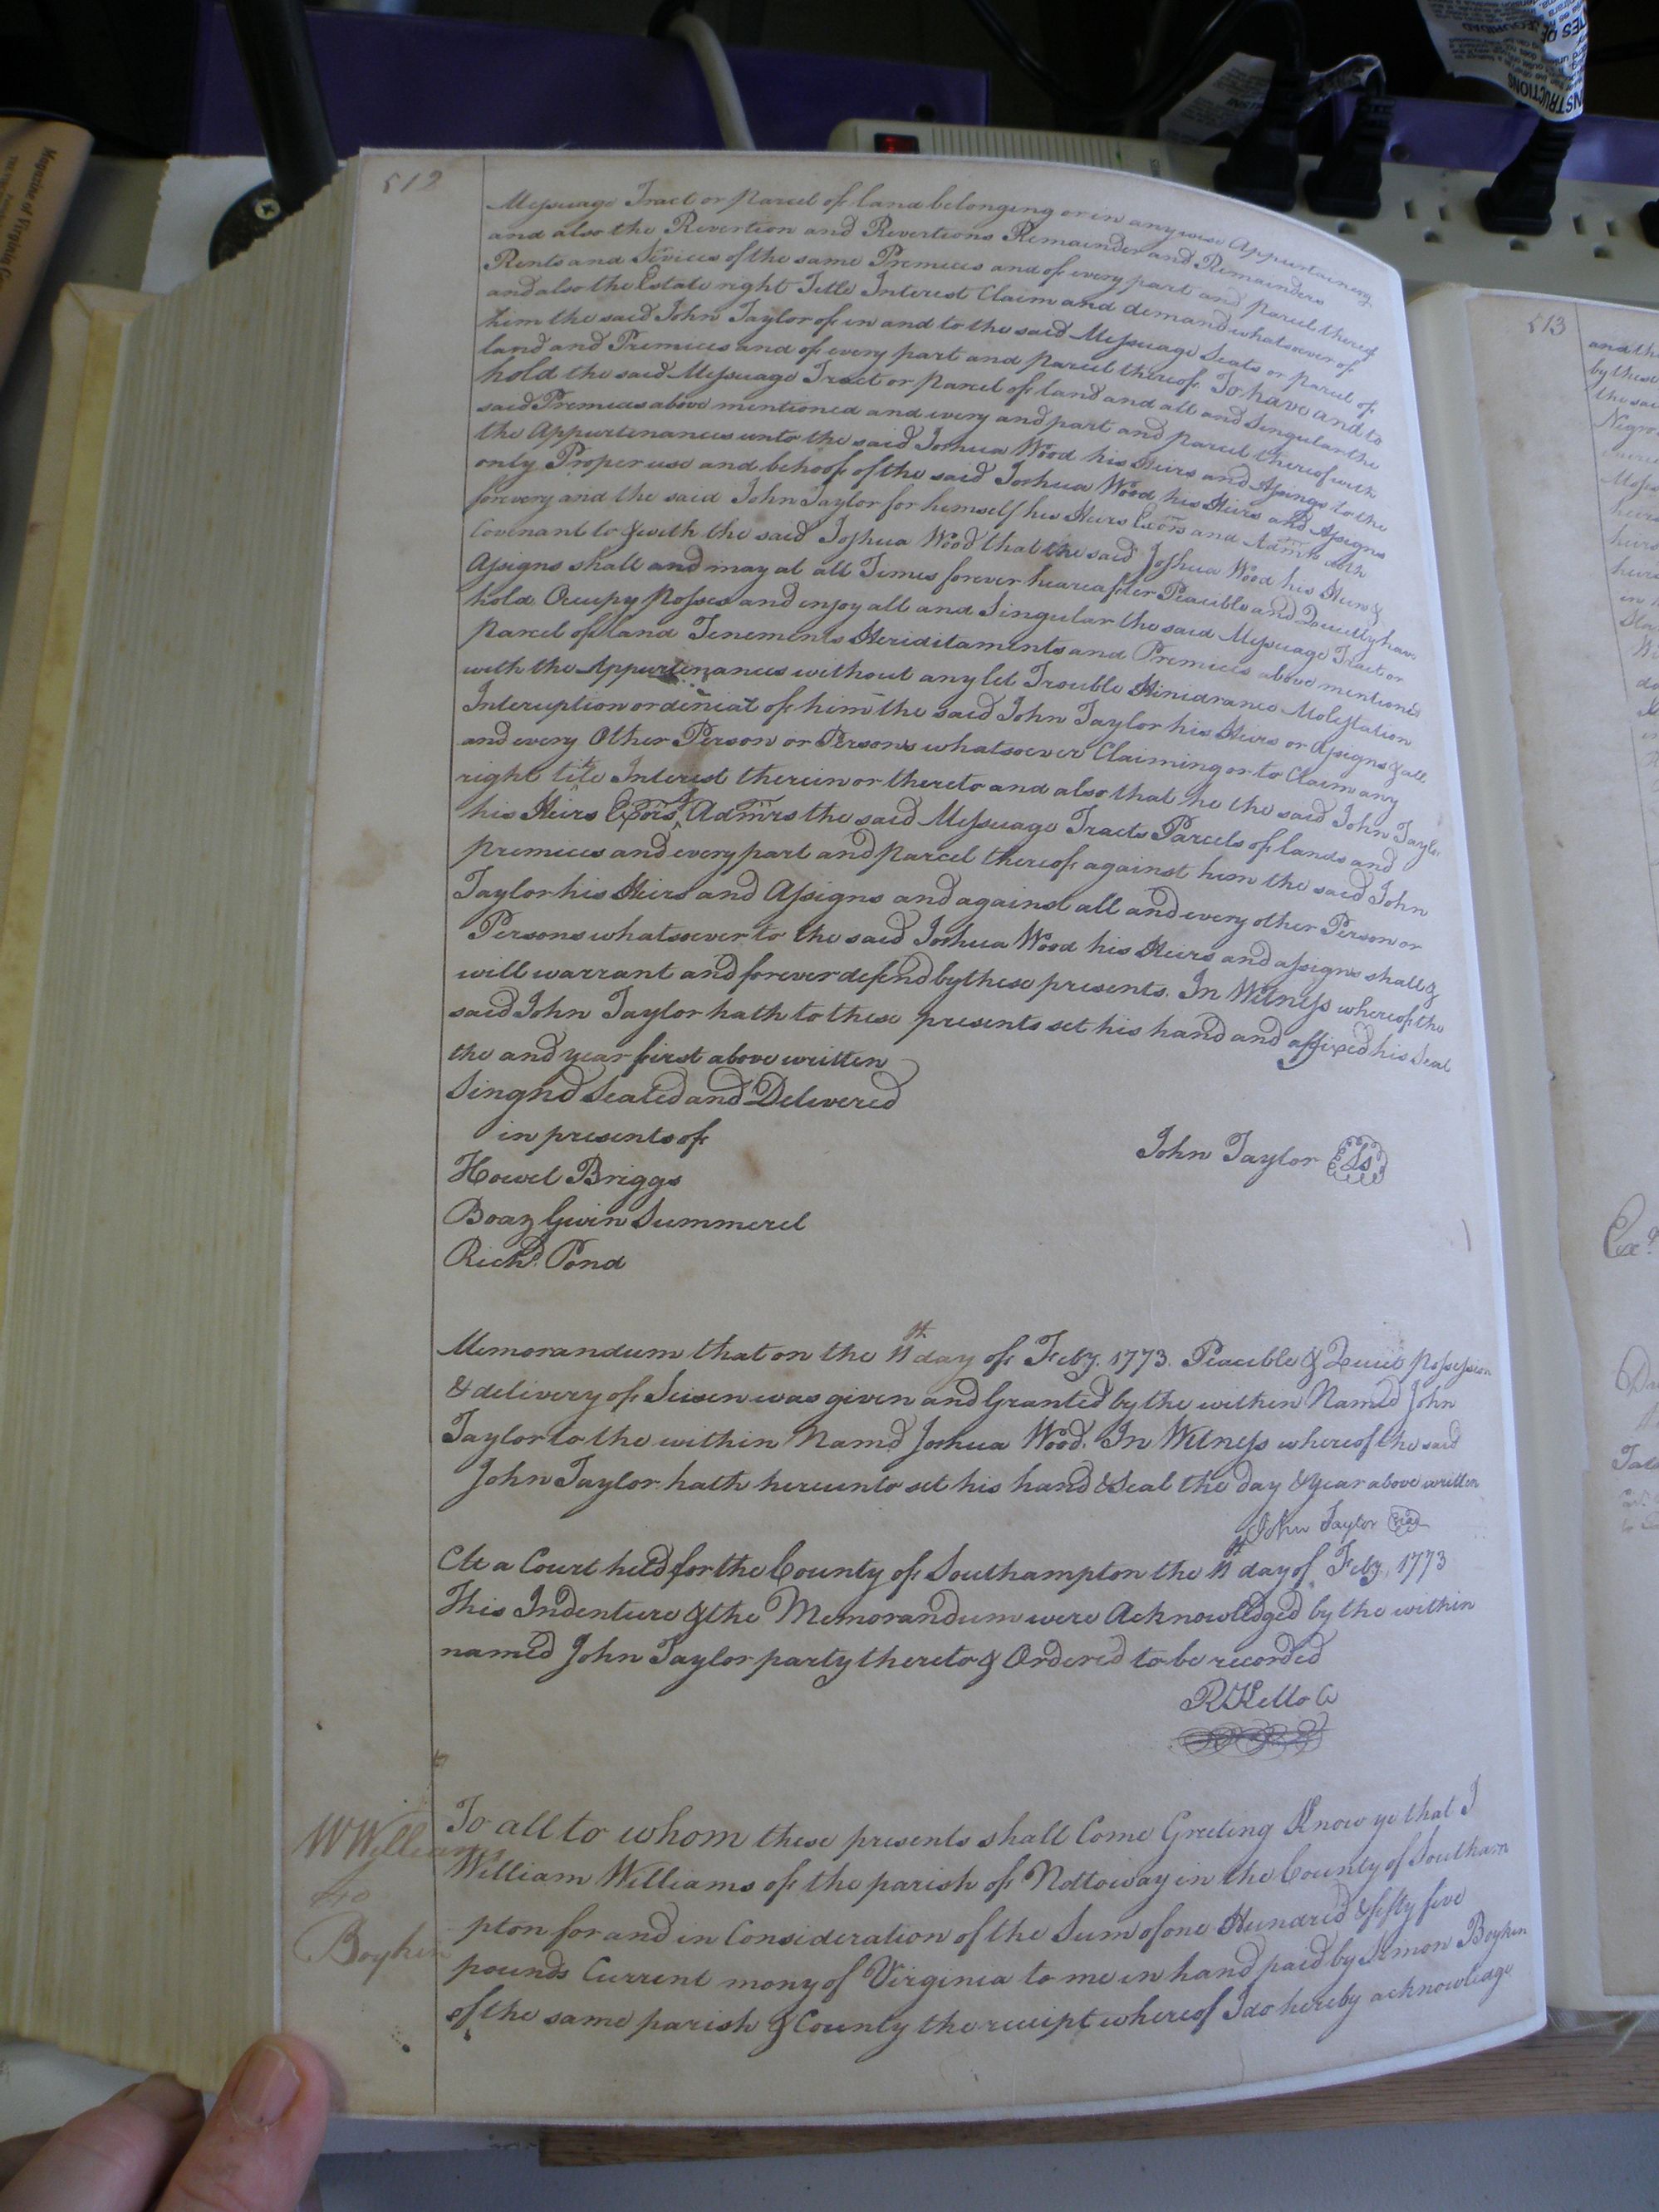 512
Messuage Tract or Parcel of land belonging or in any wise Appurtaining
and also the Revertion and Revertions Remainder and Remainders
Rents and Sirvices of the same Premices and of every part and parcel thereof
and also the Estate right Title Interest Claim and demand whatsoever of
him the said John Taylor of in and to the said Messuage Seats or parcel of
land and Premices and of every part and parcel thereof. To have and to
hold the said Messuage Tract or parcel of land and all and Singular the
said Premices above mentioned and every and part and parcel thereof with
the Appurtenances unto the said Joshua Wood his Heirs and Assings to the
only Proper use and behoof of the said Joshua Wood his Heirs and Assigns
forevery and the said John Taylor for himself his Heirs Exors and Admrs doth
Covenant to & with the said Joshua Wood that the said Joshua Wood his Heirs &
Assigns shall and may at all Times forever heareafter Peacible and Quietly have
hold, Occupy Posses and enjoy all and Singular the said Messuage Tract or
Parcel of land Tenements Heriditaments and Premices above mentioned
with the Appurtenances without any let Trouble Hinidrance Molestation
Interuption or denial of him the said John Taylor his Heirs or Assigns & all
and every Other Person or Persons whatsoever Claiming or to Claim any
right title Interest therein or thereto and also that he the said John Taylor
his Heirs Exors & Admrs the said Messuage Tracts Parcels of lands and
premices and every part and parcel thereof against him the said John
Taylor his Heirs and Assigns and against all and every other Person or
Persons whatsoever to the said Joshua Wood his Heirs and assigns shall &
will warrant and forever defend by these presents. In Witness whereof the
said John Taylor hath to these presents set his hand and affixed his Seal
the and year first above written
Singnd Sealed and Delivered
in presents of
John Taylor Ls
Howel Briggs
Boaz Gwin Summerel
Richd. Pond
Memorandum that on the 11th day of Feby. 1773. Peacible & Quiet Possession
& delivery of Seisen was given and Granted by the within Named John
Taylor to the within Namd Joshua Wood. In Witness whereof the said
John Taylor hath hereunto set his hand & Seal the day & year above written
John Taylor
At a Court held for the County of Southampton the 11th day of Feby. 1773
This Indenture & the Memorandum were Acknowledged by the within
named John Taylor party thereto & Ordered to be recorded
R Kello C
W Williams
to
Boyken
To all to whom these presents shall Come Greeting Know ye that I
William Williams of the parish of Nottoway in the County of Southam
pton for and in Consideration of the Sum of one Hundred & fifty five
pounds Current mony of Virginia to me in hand paid by Simon Boyken
of the same parish & County the receipt whereof I do hereby acknowledge
513
and th
by these
the sai
Negro
Magazine of Virginia
INSTRUCTIONS